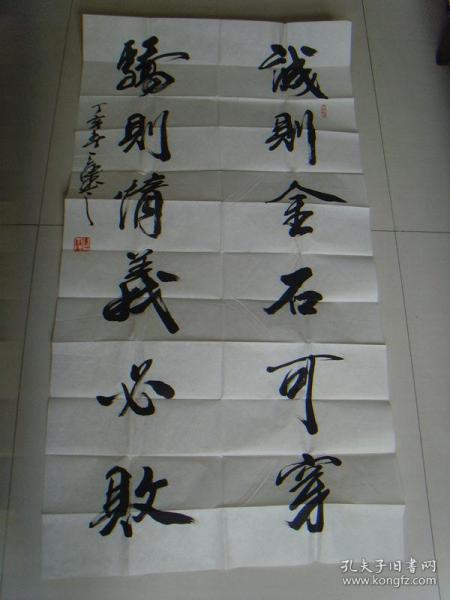 誠則金石可穿
驕則情義必敗
丁亥年
孔夫子旧书网
www.kongfz.com